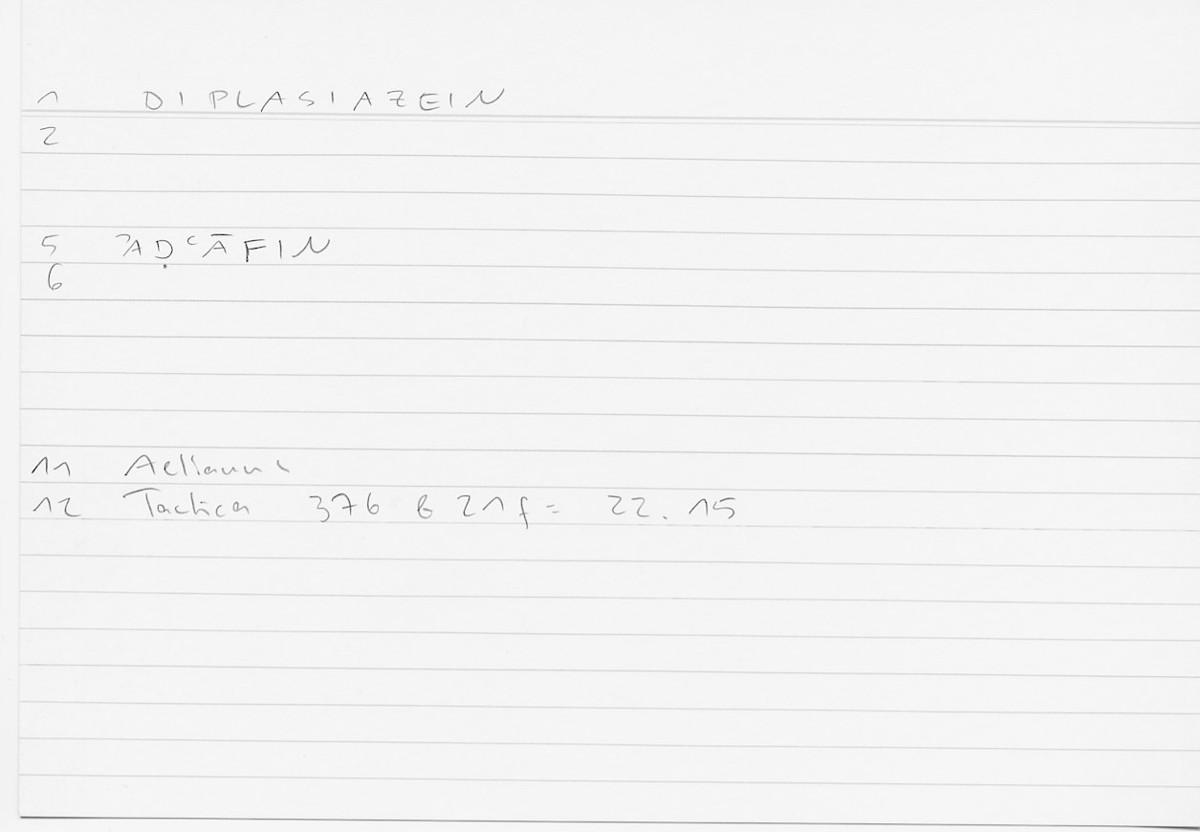 1 DIPLASIAZEIN
2
5 ʾAḌʿĀFIN
6
11 Aelianus
12 Tactica 376 b 21 f = 22.15